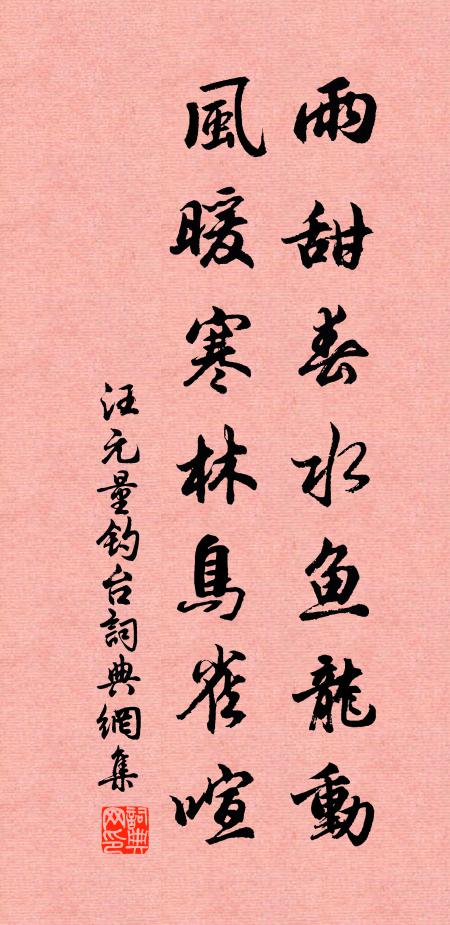 雨甜春水鱼龍動
風暖寒林鳥雀喧
汪元量钓台詞典網集
詞典网印